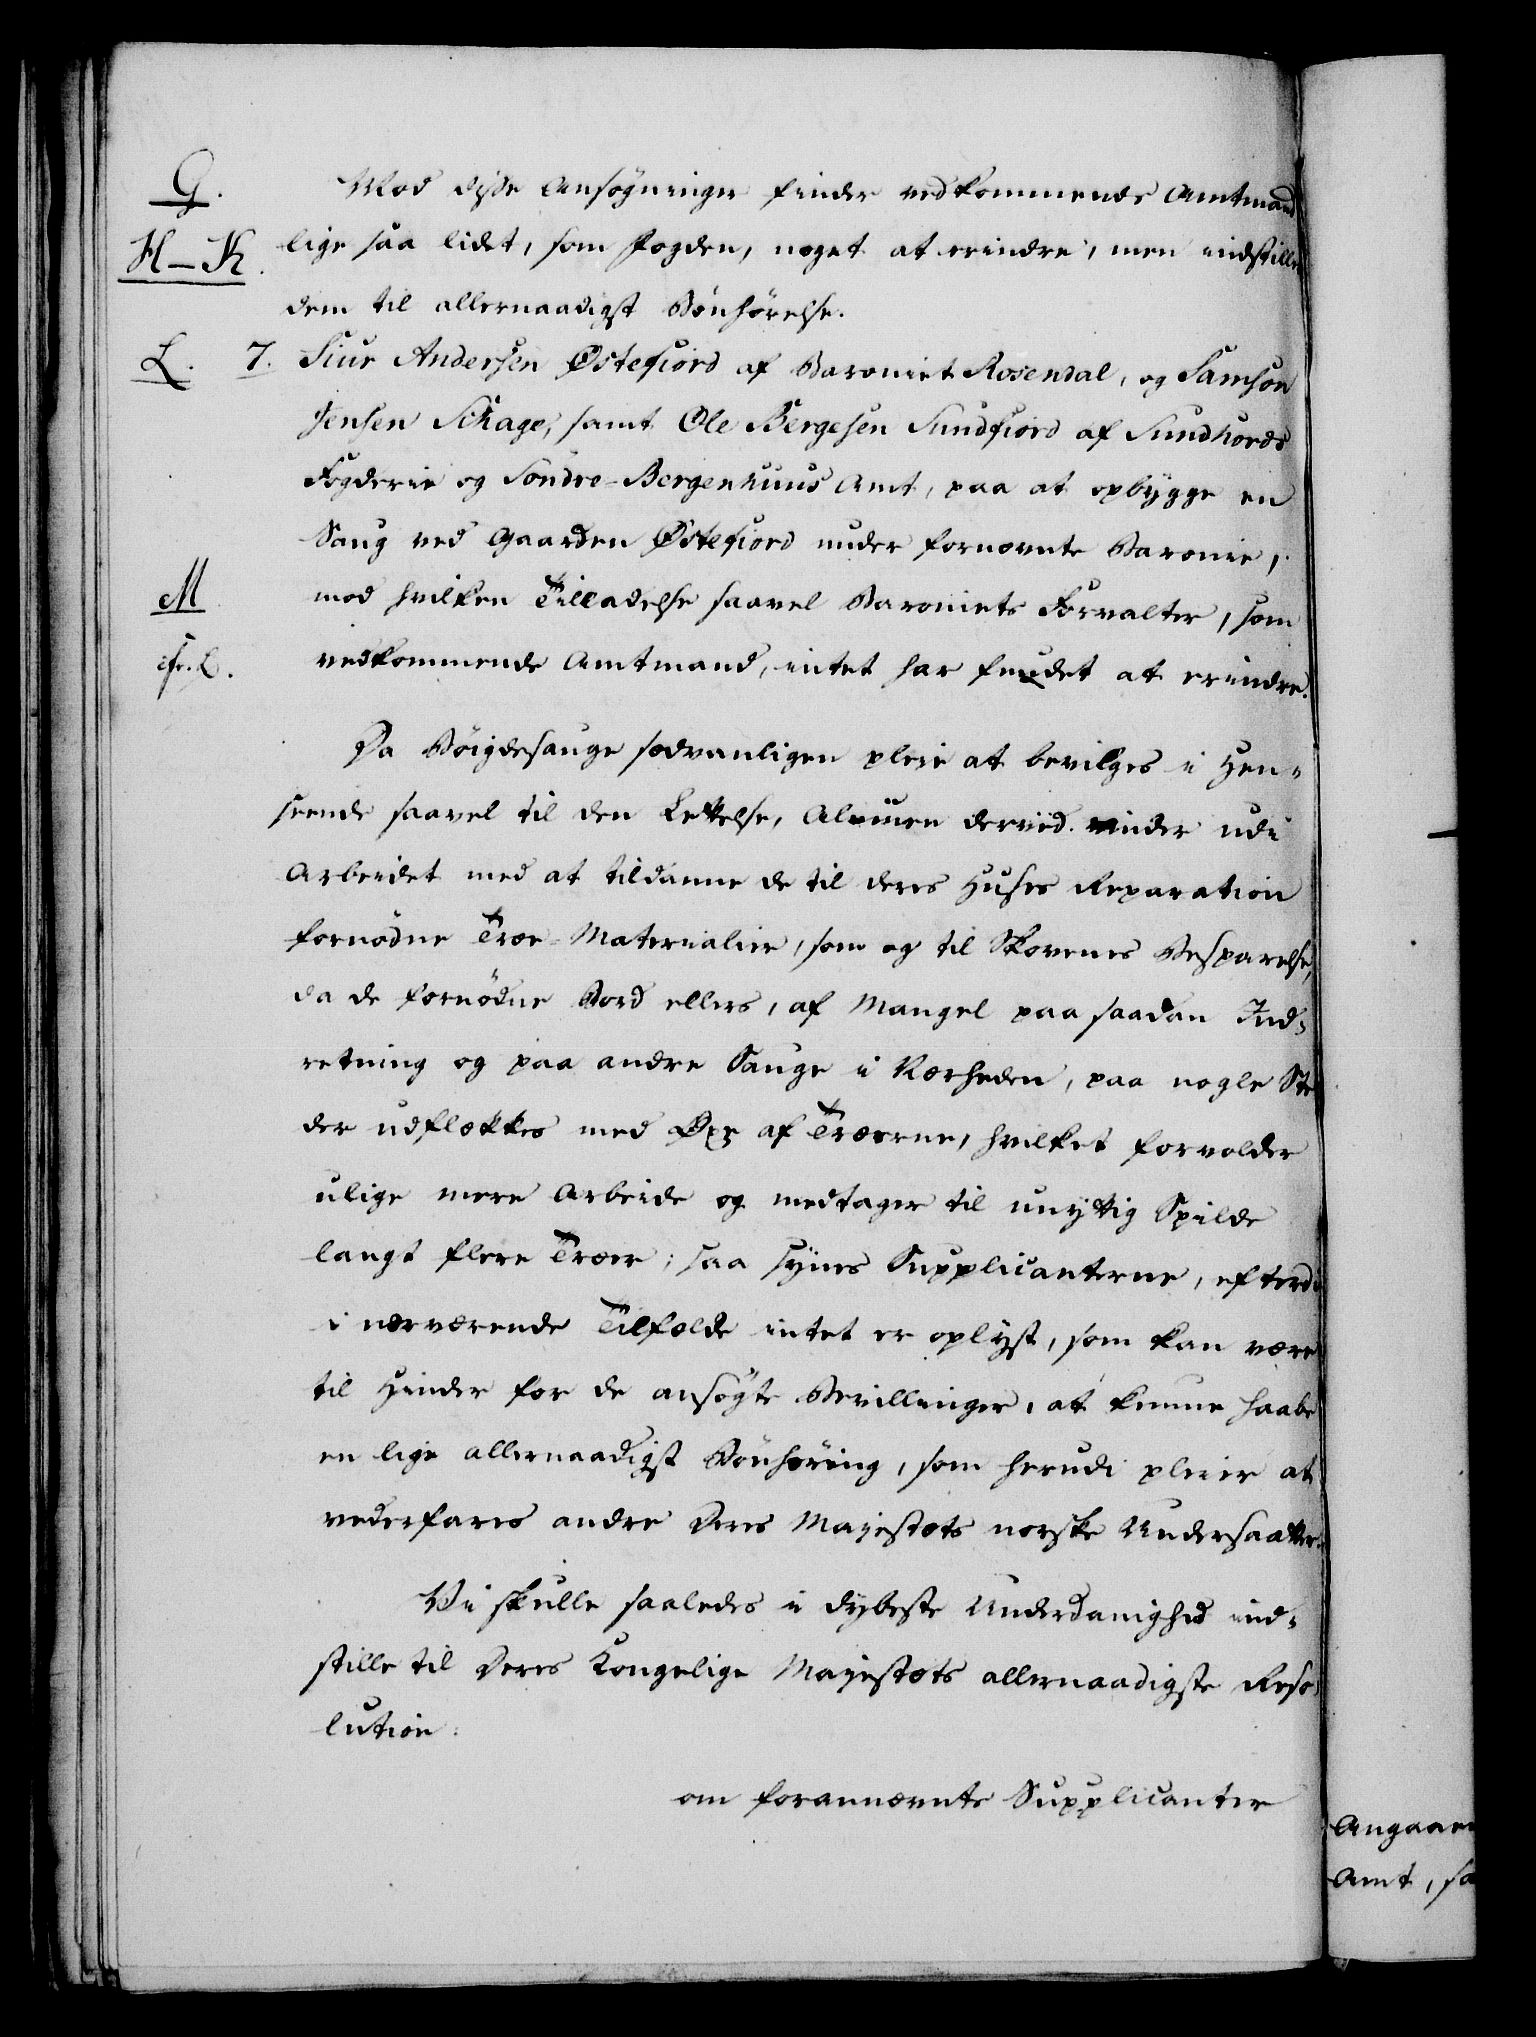 G.
Mod disse Ansøgninger finder vedkommende Amtmand
H-K.
lige saa lidet, som Fogden, noget at erindre, men indstille
dem til allernaadigst Bönhörelse.
L. 7. Siur Andersen Östefiord af Baroniet Rosendal, og Samson
Jensen Schage, samt Ole Bergesen Sundfiord af Sundhords
Fogderie og Söndre-Bergenhuus Amt, paa at opbygge en
Saug ved Gaarden Östefiord under fornævnte Baronie,
M
mod hvilken Tilladelse saavel Baroniets Forvalter, som
cfr. L.
vedkommende Amtmand, intet har fundet at erindre.
Da Böigdesauge sædvanligen pleie at bevilges i Hen-
seende saavel til den Lettelse, Almuen derved vinder udi
Arbeidet med at tildanne de til deres Huses Reparation
fornödne Træe-Materialier, som og til Skovenes Besparelse,
da de fornödne Bord ellers, af Mangel paa saadan Ind-
retning og paa andre Sauge i Nærheden, paa nogle Ste
der udflækkes med Öxe af Træerne, hvilket forvolder
ulige mere Arbeide og medtager til unyttig Spilde
langt flere Træer; saa synes Supplicanterne, efterdi
i nærværende Tilfælde intet er oplyst, som kan være
til Hinder for de ansögte Bevillinger, at kunne haabe
en lige allernaadigst Bönhöring, som herudi pleier at
vederfares andre Deres Majestæts norske Undersaatter.
Vi skulle saaledes i dybeste Underdanighed ind-
stille til Deres Kongelige Majestæts allernaadigste Reso-
lution:
om forannævnte Supplicanter
Angaaen
Amt, sa